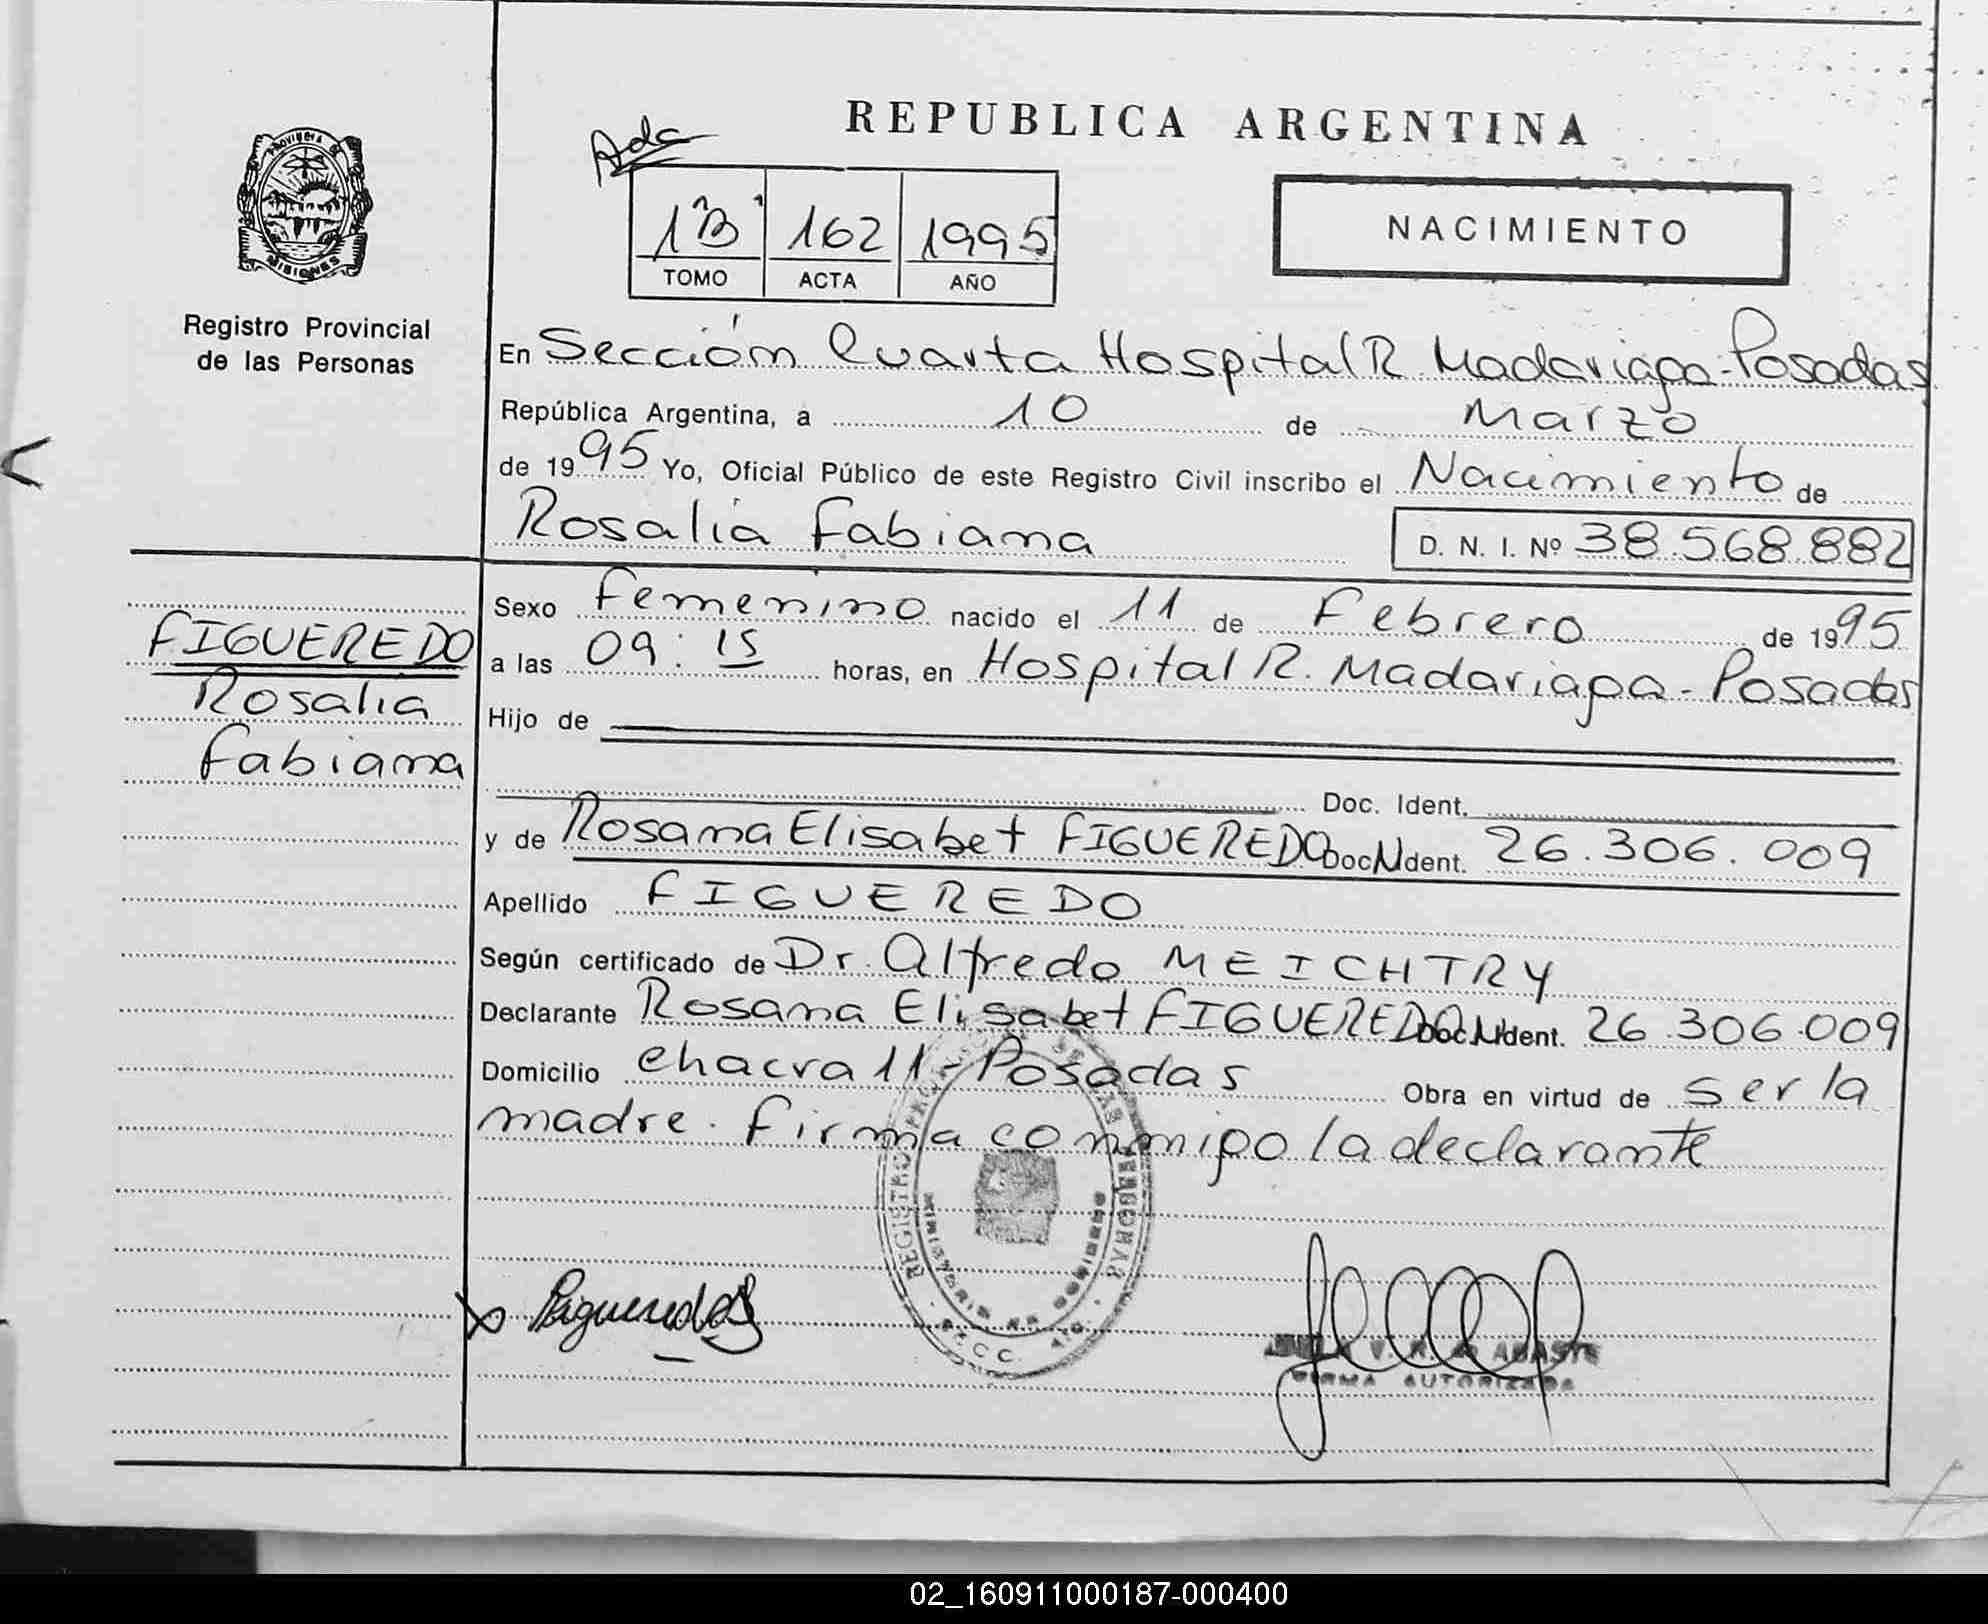 REPUBLICA ARGENTINA
Ada
1 "B" 162 1995
TOMO ACTA AÑO
NACIMIENTO
PROVINCIA DE
MISIONES
Registro Provincial
de las Personas
En Sección Cuarta Hospital R. Madariaga - Posadas
República Argentina, a 10 de Marzo
de 1995 Yo, Oficial Público de este Registro Civil inscribo el Nacimiento de
Rosalía Fabiana D. N. I. Nº 38.568.882
FIGUEREDO
Rosalía
Fabiana
Sexo Femenino nacido el 11 de Febrero de 1995
a las 09:15 horas, en Hospital R. Madariaga - Posadas
Hijo de
Doc. Ident.
y de Rosana Elisabet FIGUEREDO Doc. Ident. 26.306.009
Apellido FIGUEREDO
Según certificado de Dr. Alfredo MEICHTRY
Declarante Rosana Elisabet FIGUEREDO Doc. Ident. 26.306.009
Domicilio chacra 11 - Posadas Obra en virtud de ser la
madre. Firma conmigo la declarante
REGISTRO PROVINCIAL DE LAS PERSONAS
MINISTERIO DE GOBIERNO
FIRMA AUTORIZADA
02_160911000187-000400